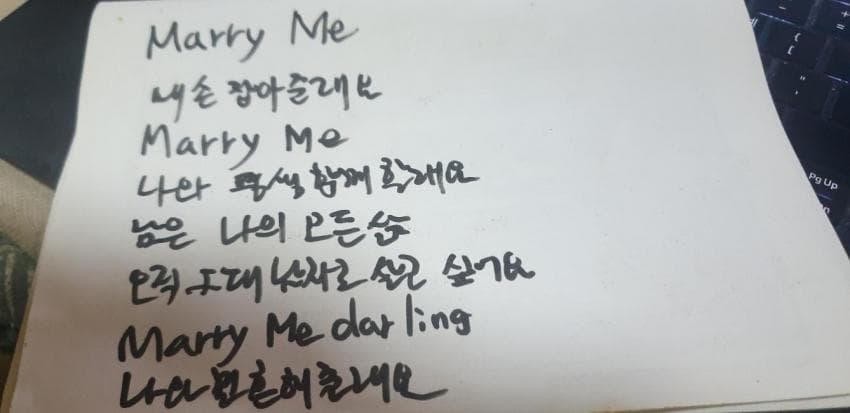 Marry Me
내 손 잡아줄래요
Marry Me
나와 평생 함께 할래요
남은 나의 모든 삶
오직 그대 남자로 살고 싶어요
Marry Me darling
나와 결혼해줄래요
Pg Up